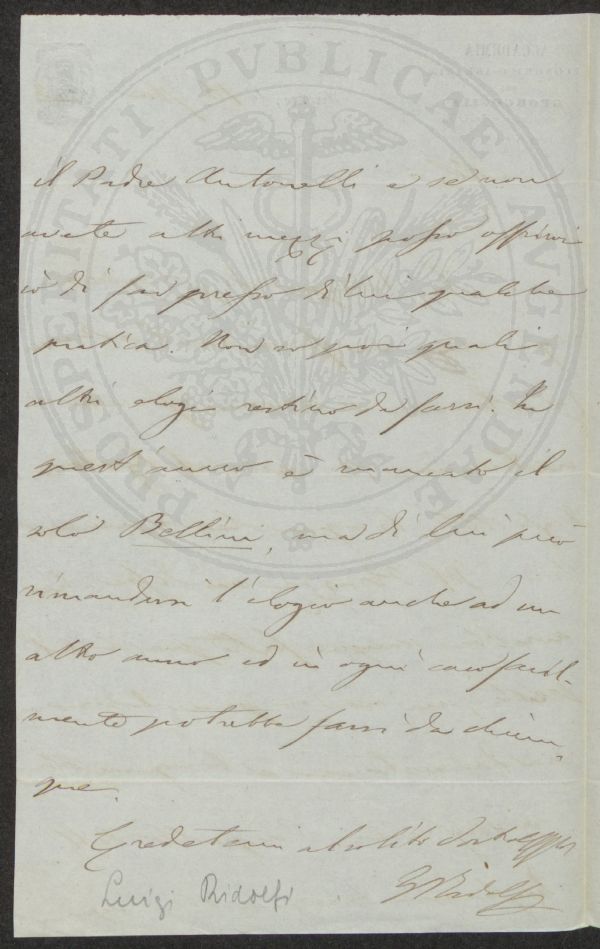 PROSPERITATI PVBLICAE AVGENDAE
il Padre Antonelli e se non
avete altri mezzi posso offrirvi
io di far presso di lui qualche
pratica. Non so poi quali
altri elogi restino da farsi. In
quest'anno è mancato il
solo Bellini, ma di lui può
rimandarsi l'elogio anche ad un
altro anno ed in ogni caso facil-
mente potrebbe farsi da chiun-
que.
Credetemi al solito
Ridolfi
Luigi Ridolfi